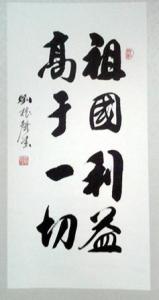 祖國利益
高于一切